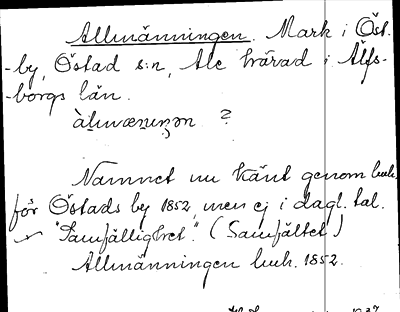 Allmänningen. Mark i Öst-
by, Östad s:n, Ale härad i Älfs-
borgs län.
?
Namnet nu känt genom luh.
för Östads by 1852, men ej i dagl. tal.
"Samfällighet". (Samfältet)
Allmänningen luh. 1852.